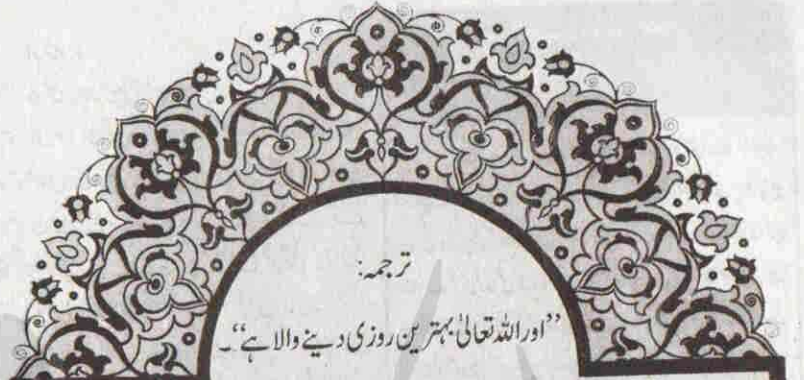 ترجمہ:
’’اور اللہ تعالیٰ بہترین روزی دینے والا ہے‘‘۔